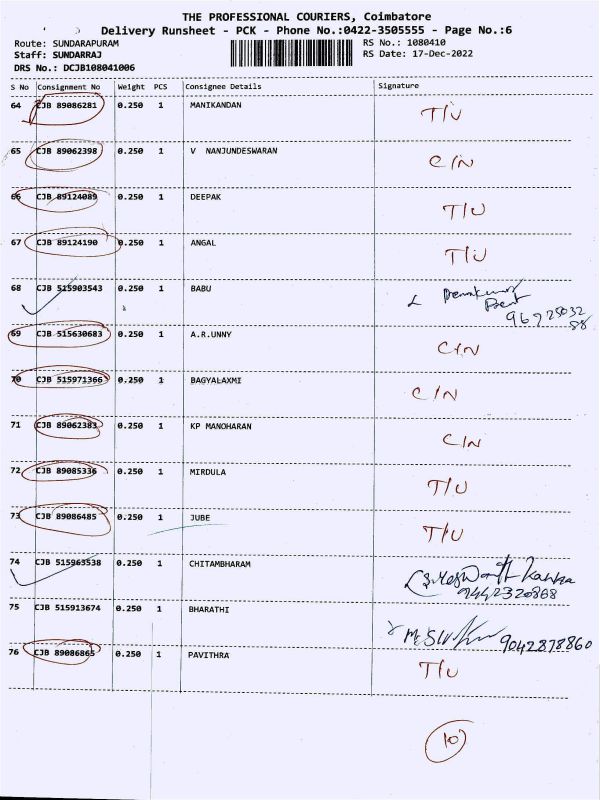 THE PROFESSIONAL COURIERS, Coimbatore
Delivery Runsheet - PCK - Phone No.:0422-3505555 - Page No.:6
Route: SUNDARAPURAM RS No.: 1080410
Staff: SUNDARRAJ RS Date: 17-Dec-2022
DRS No.: DCJB108041006
S No Consignment No Weight PCS Consignee Details Signature
64 CJB 89086281 0.250 1 MANIKANDAN T/U
65 CJB 89062398 0.250 1 V NANJUNDESWARAN C/N
66 CJB 89124089 0.250 1 DEEPAK T/U
67 CJB 89124190 0.250 1 ANGAL T/U
68 CJB 515903543 0.250 1 BABU
69 CJB 515630683 0.250 1 A.R.UNNY C/N
70 CJB 515971366 0.250 1 BAGYALAXMI C/N
71 CJB 89062383 0.250 1 KP MANOHARAN C/N
72 CJB 89085336 0.250 1 MIRDULA T/U
73 CJB 89086485 0.250 1 JUBE T/U
74 CJB 515963538 0.250 1 CHITAMBHARAM
9442320868
75 CJB 515913674 0.250 1 BHARATHI 9042878860
76 CJB 89086865 0.250 1 PAVITHRA T/U
10